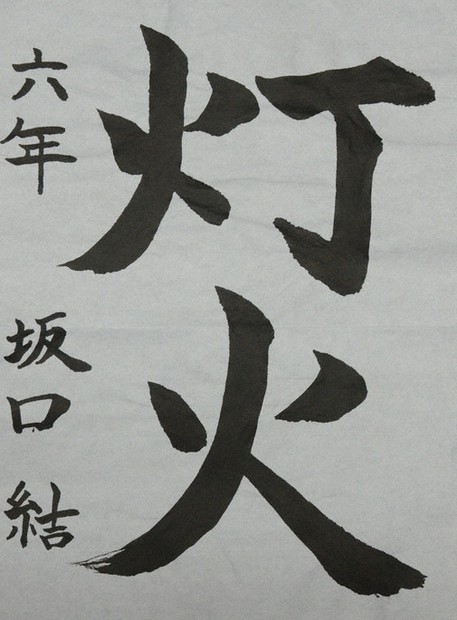 灯火
六年 坂口 結